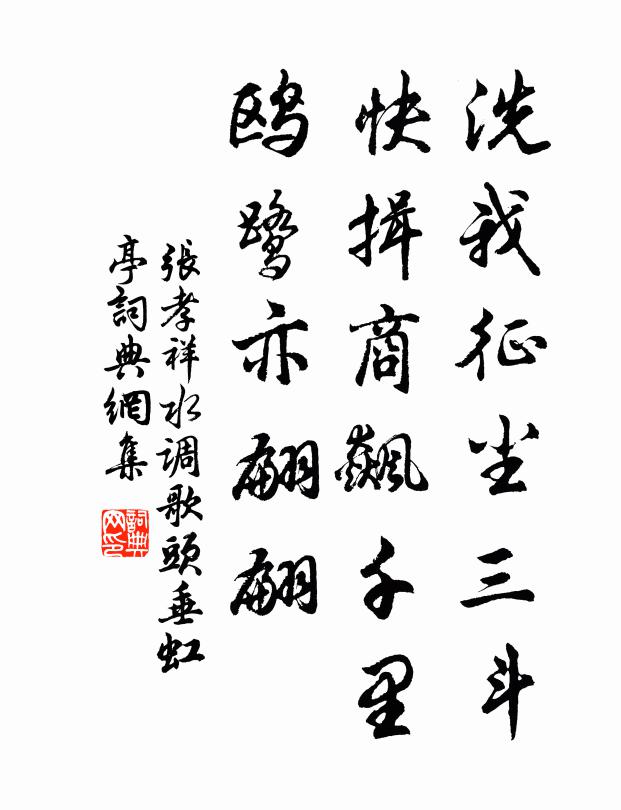 洗我征尘三斗
快揖商飙千里
鸥鹭亦翩翩
張孝祥水调歌頭垂虹
亭詞典網集
詞典网印